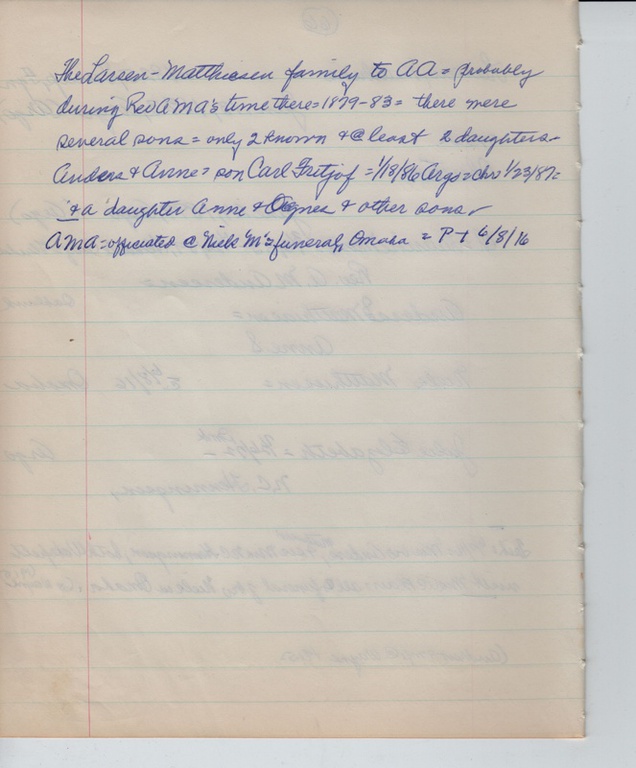 The Larsen-Matthiesen family to AA = probably
during Rev AMA's time there = 1879-83 = there were
several sons = only 2 known & @ least 2 daughters -
Anders & Anne = son Carl Fritjof = 1/18/86 Argo = chr 1/23/87 =
& a daughter Anne & Agnes & other sons -
AMA = officiated @ Niels "M" = funeral, Omaha = P-1 6/8/16